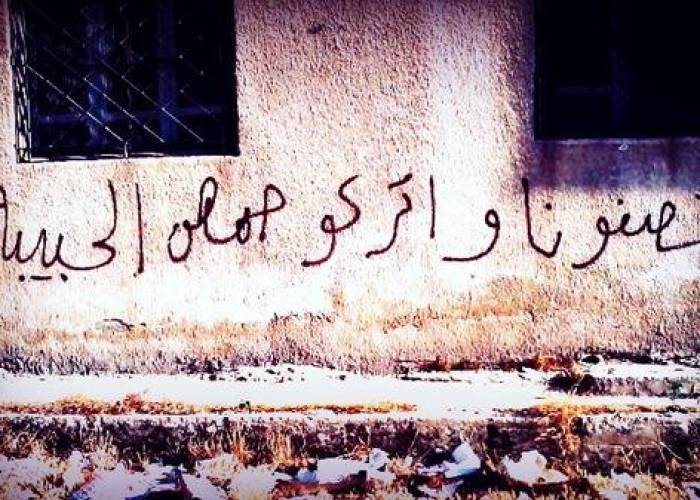 صفونا و اتركو حمص الحبيبة